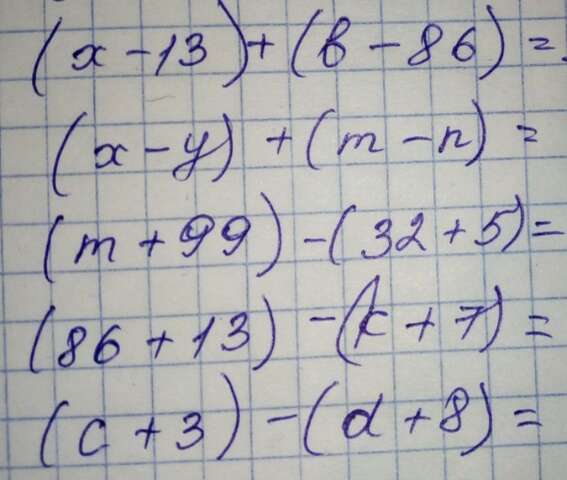 (x - 13) + (в - 86) =
(x - y) + (m - n) =
(m + 99) - (32 + 5) =
(86 + 13) - (k + 7) =
(c + 3) - (d + 8) =